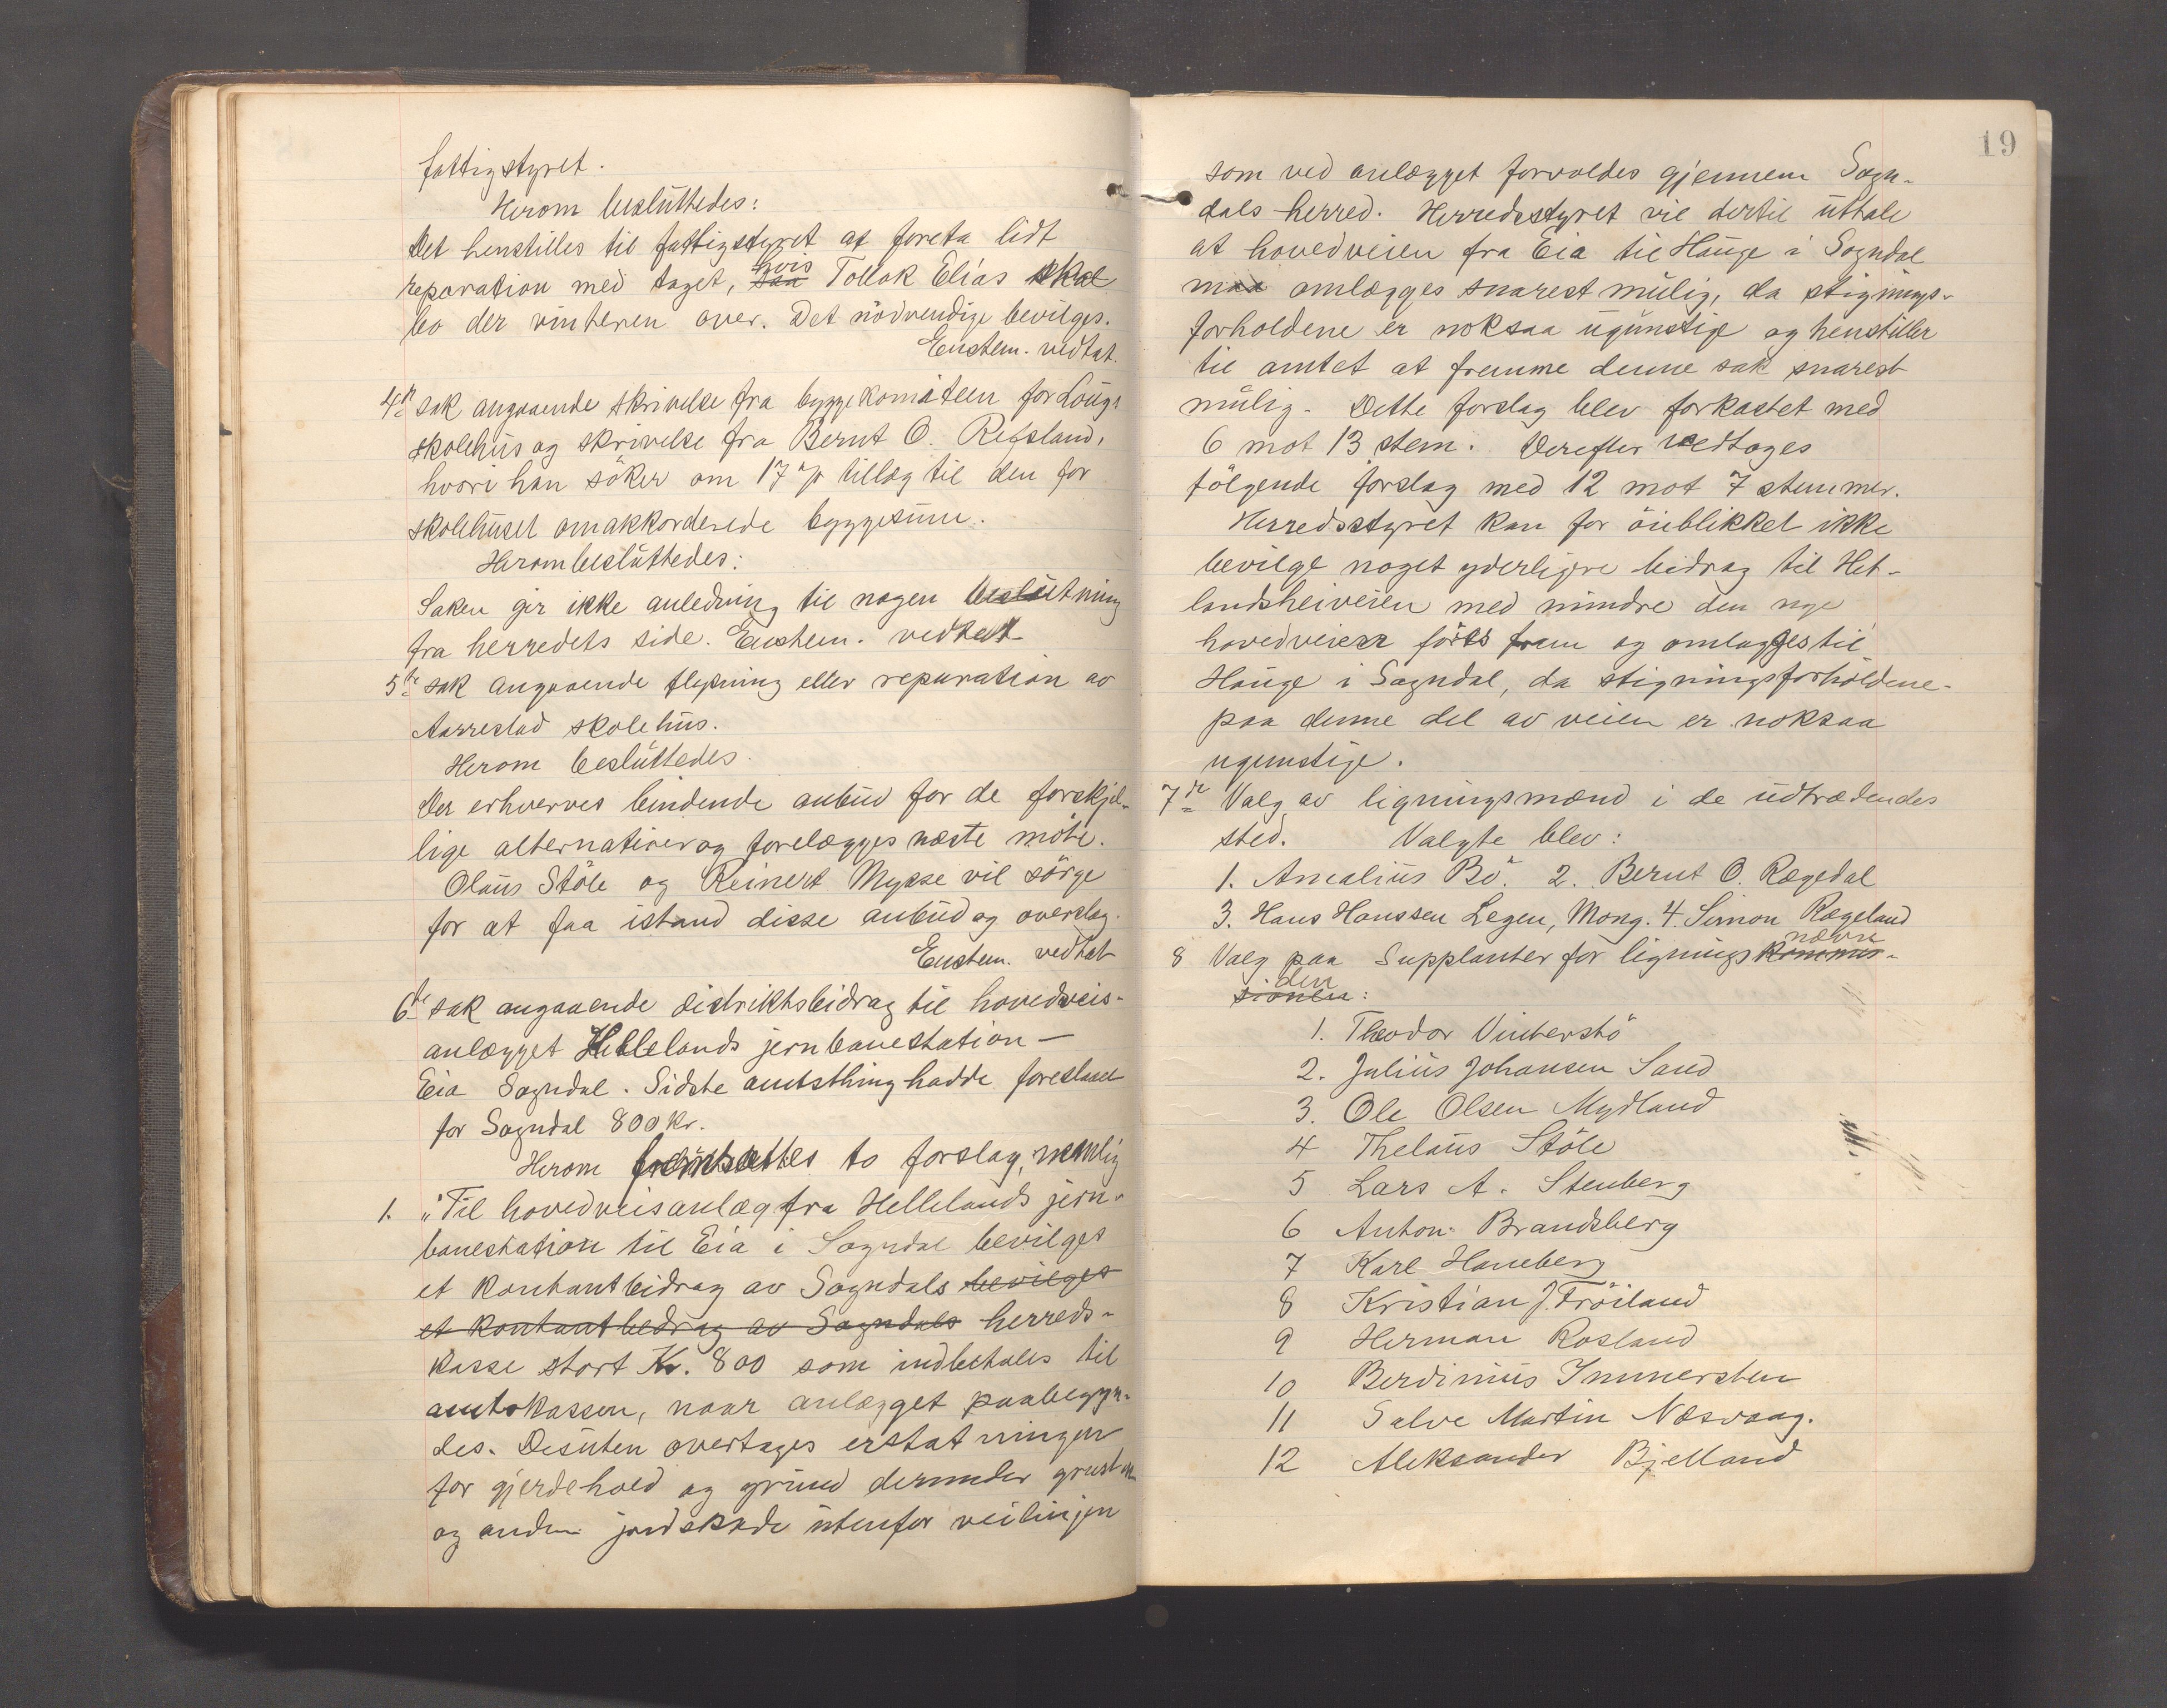 fattigstyret.
Herom beslúttedes:
Det henstilles til fattigstyret at foreta lidt
reparation med taget, saa hvis Tollak Elias skal
bo der vinteren over. Det nödvendige bevilges.
Enstem. vedtat.
4de sak angaaende skrivelse fra byggekomiteen for
skolehús og skrivelse fra Bernt O. Refsland,
hvori han söker om 17 % tillæg til den for
skolehúset omakkorderede byggesúm.
Herom beslúttedes:
Saken gir ikke anledning til nogen beslútning
fra herredets side. Enstem. vedtat
5te sak angaaende flytning eller reparation av
Aarrestad skolehús.
Herom beslúttedes.
Der erhverves bindende anbúd for de forskjel-
lige alternativer og forelægges næste möte.
Olaús Stöle og Reinert Mysse vil sörge
for at faa istand disse anbúd og overslag.
Enstem. vedtat
6te sak angaaende distriktsbidrag til hovedveis-
anlægget Hellelands jernbanestation –
Eia Sogndal. Sidste amtsthing hadde foreslaaet
for Sogndal 800 kr.
Herom fremsattes to forslag, nemlig
1. "Til hovedveisanlæg fra Hellelands jern-
banestation til Eia i Sogndal bevilges
et kontantbidrag av Sogndals bevilges
et kontantbedrag av Sogndals herreds-
kasse stort Kr. 800 som indbetales til
amtskassen, naar anlægget paabegyn-
des. Desúten overtages erstatningen
for gjerdehold og grúnd derunder
og anden jordskade útenfor veilinjen
19
som ved anlægget forvoldes gjennem Sogn-
dals herred. Herredsstyret vil dertil úttale
at hovedveien fra Eia til Haúge i Sogndal
maa omlægges snarest múlig, da stignings-
forholdene er noksaa úgúnstige og henstiller
til amtet at fremme denne sak snarest
múlig. Dette forslag blev forkastet med
6 mot 13 stem. Derefter vedtoges
fölgende forslag med 12 mot 7 stemmer.
Herredsstyret kan for öieblikket ikke
bevilge noget yderligere bidrag til Het-
landsheiveien med mindre den nye
hovedveien föres frem og omlægges til
Haúge i Sogndal, da stigningsforholdene
paa denne del av veien er noksaa
ugunstige.
7de Valg av ligningsmænd i de údtrædendes
sted. Valgte blev:
1. Amaliús Bö. 2. Bernt O. Rægedal
3. Hans Hanssen Legen, Mong. 4. Simon Rægeland
8 Valg paa Supplanter for lignings kommis- nævn
sionen den:
1. Theodor Vinterstö
2. Juliús Johansen Sand
3. Ole Olsen Mydland
4 Thelaús Stöle
5 Lars A. Stenberg
6 Anton Brandsberg
7 Karl Haneberg
8 Kristian J. Fröiland
9 Herman Rosland
10 Berdiniús Immerstein
11 Salve Martin Næsvaag.
12 Aleksander Bjelland